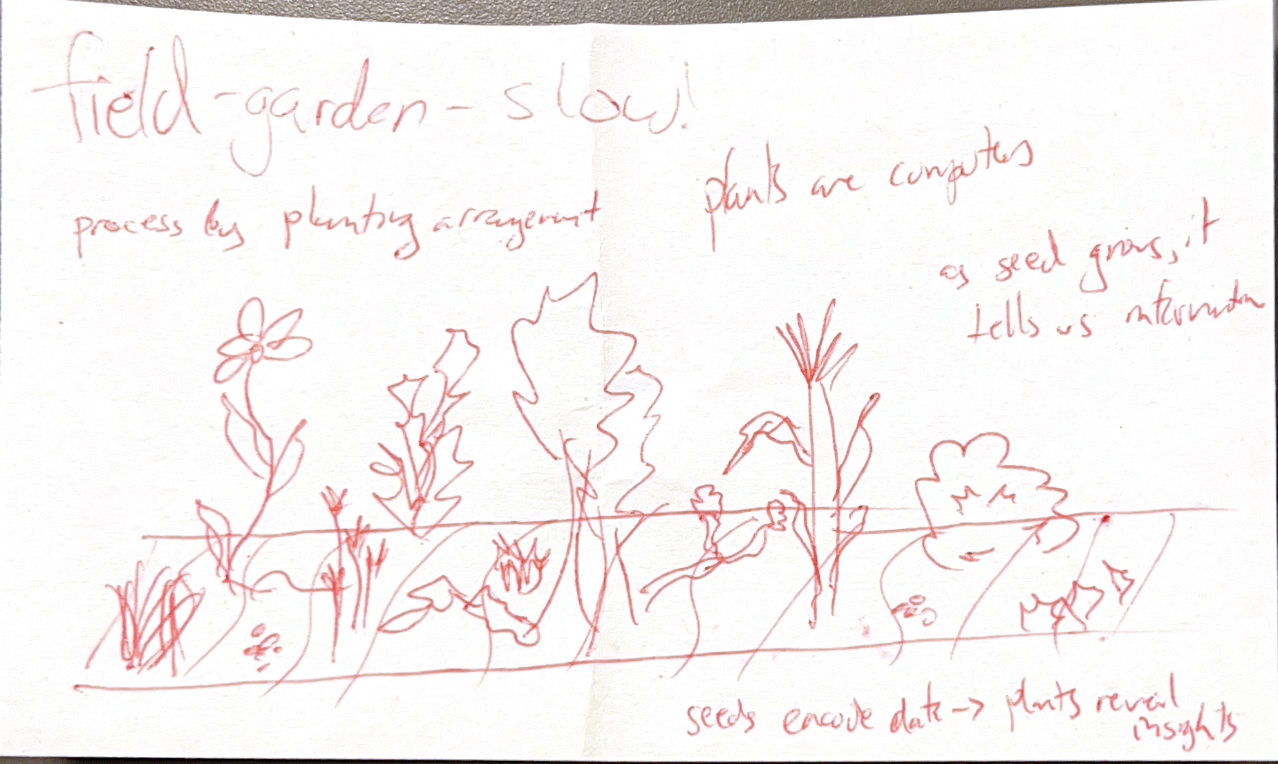 field-garden-slow!
process by planting arrangement
plants are computers
as seed grows, it
tells us information
seeds encode data -> plants reveal
insights